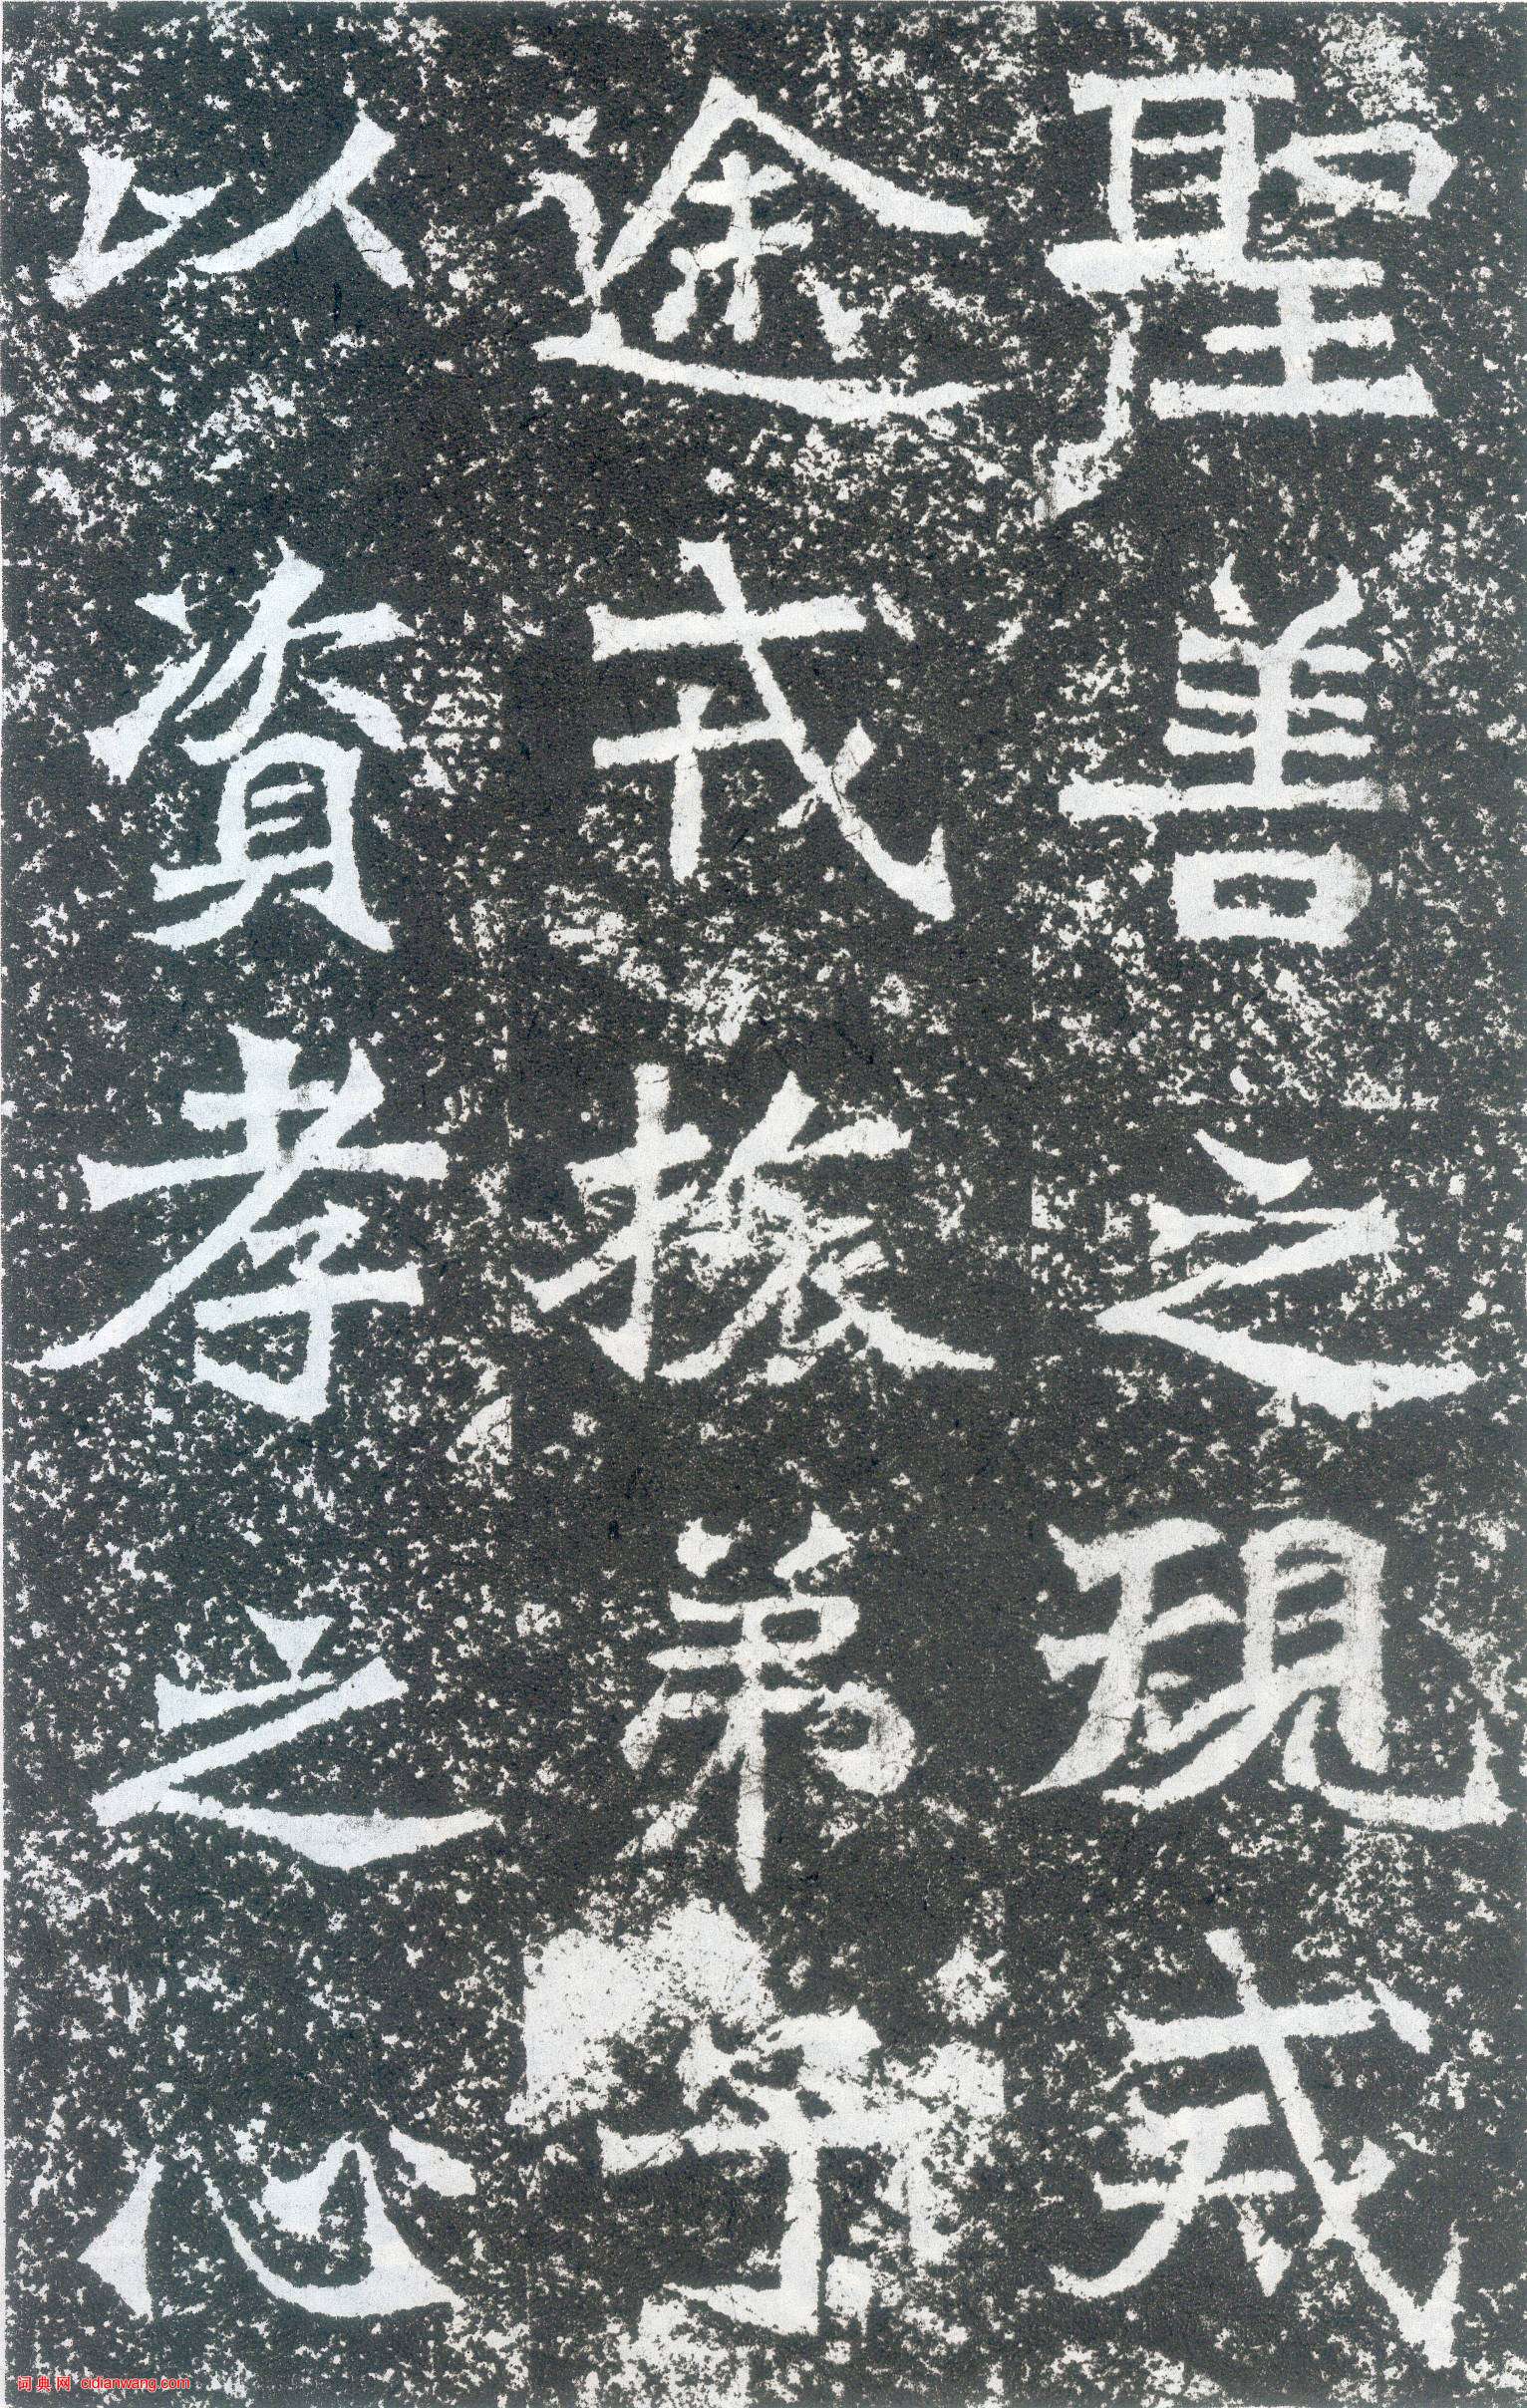 聖善之規戒
途戎振弟子
以資孝之心
词典网 cidianwang.com